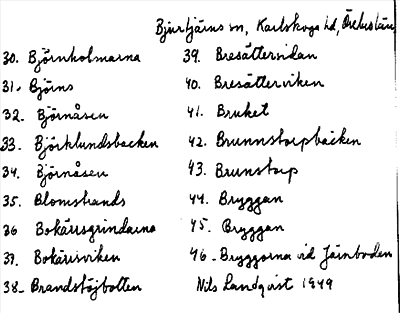 Bjurtjärns sn, Karlskoga hd, Örebro län
30. Björnholmarna
31. Björns
32. Björnåsen
33. Björklundsbacken
34. Björnåsen
35. Blomstrands
36 Bokärrsgrindarna
37. Bokärrsviken
38. Brandstöjbotten
39. Bresättersidan
40. Bresätterviken
41. Bruket
42. Brunnstorpbäcken
43. Brunstorp
44. Bryggan
45. Bryggan
46. Bryggorna vid Järnboden
Nils Landqvist 1949